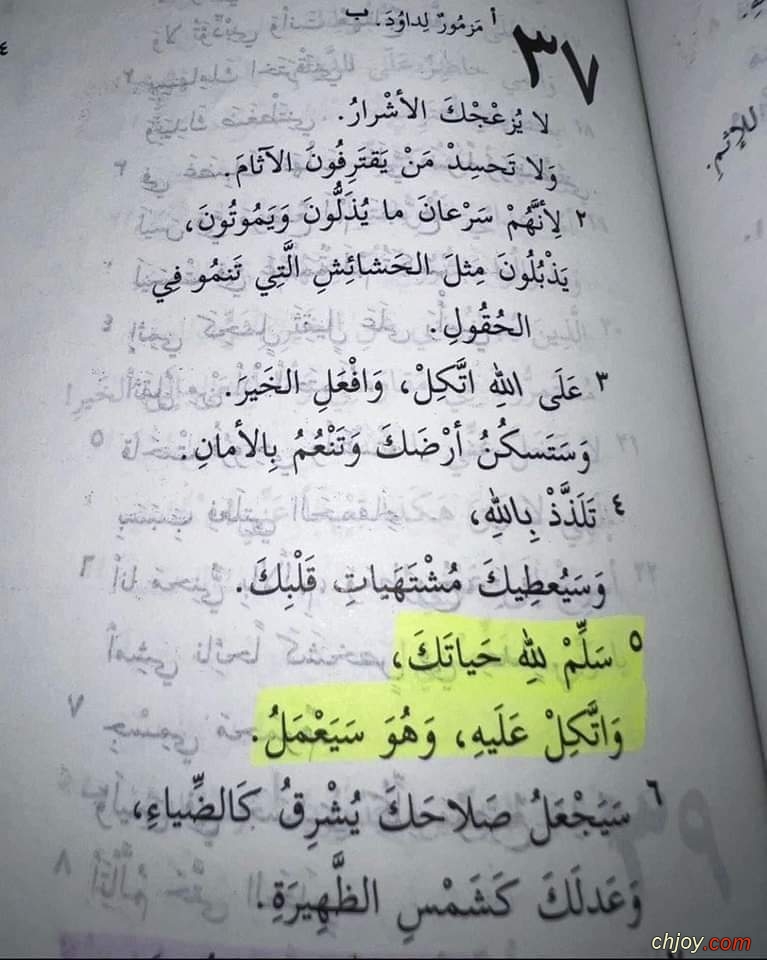 أ مَزمُورٌ لِداوُدَ. ب
٣٧
لا يُزعْجْكَ الأشْرارُ.
وَلا تَحسِدْ مَنْ يَقتَرِفُونَ الآثامَ.
٢ لِأنَّهُمْ سَرْعانَ ما يُذَلُّونَ وَيَمُوتُونَ،
يَذْبُلُونَ مِثلَ الحَشائِشِ الَّتِي تَنمُو فِي
الحُقُولِ.
٣ عَلَى اللهِ اتَّكِلْ، وَافْعَلِ الخَيرَ.
وَسَتَسكُنُ أرْضَكَ وَتَنْعُمُ بِالأمانِ.
٤ تَلَذَّذْ بِاللهِ،
وَسَيُعطِيكَ مُشْتَهَياتِ قَلْبِكَ.
٥ سَلِّمْ لِلّهِ حَياتَكَ،
وَاتَّكِلْ عَلَيهِ، وَهُوَ سَيَعْمَلُ.
٦ سَيَجْعَلُ صَلاحَكَ يُشْرِقُ كَالضِّياءِ،
وَعَدلَكَ كَشَمْسِ الظَّهِيرَةِ.
لِلإثمِ.
chjoy.com